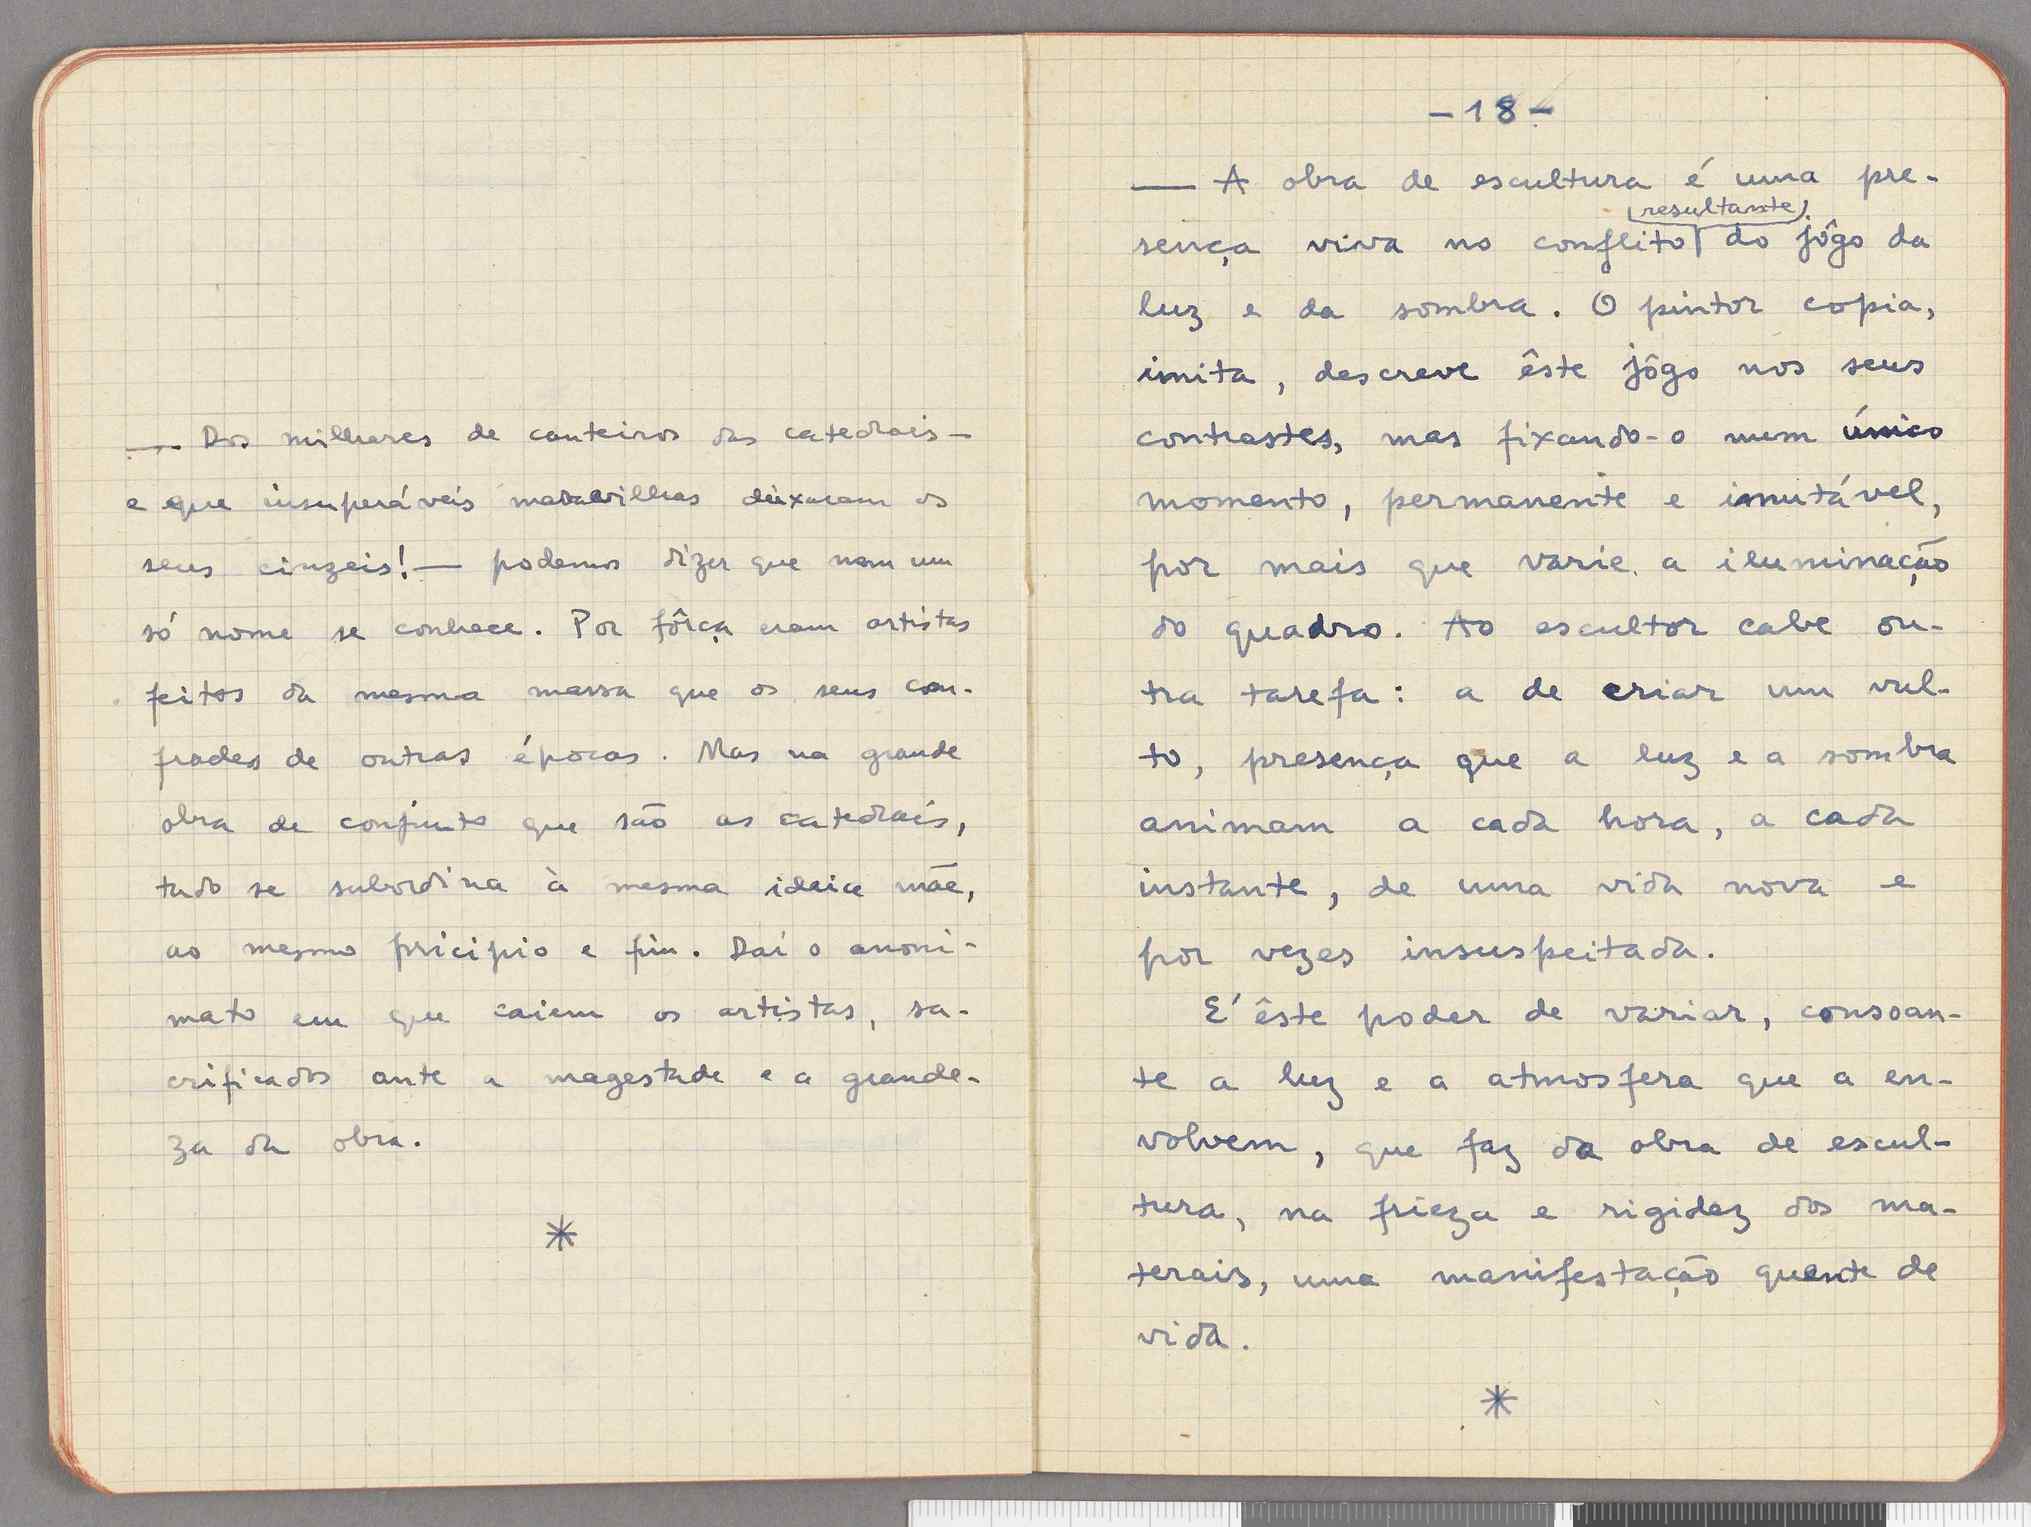 — Dos milhares de canteiros das catedrais —
e que insuperáveis maravilhas deixaram os
seus cinzeis! — podemos dizer que nem um
só nome se conhece. Por fôrça eram artistas
feitos da mesma massa que os seus con-
frades de outras épocas. Mas na grande
obra de conjunto que são as catedrais,
tudo se subordina à mesma ideia mãe,
ao mesmo pricipio e fim. Daí o anoni-
mato em que caiem os artistas, sa-
crificados ante a magestade e a grande-
za da obra.
*
- 18 -
— A obra de escultura é uma pre-
(resultante)
sença viva no conflito do jôgo da
luz e da sombra. O pintor copia,
imita, descreve êste jôgo nos seus
contrastes, mas fixando-o num único
momento, permanente e imutável,
por mais que varie a iluminação
do quadro. Ao escultor cabe ou-
tra tarefa: a de criar um vul-
to, presença que a luz e a sombra
animam a cada hora, a cada
instante, de uma vida nova e
por vezes insuspeitada.
E' êste poder de variar, consoan-
te a luz e a atmosfera que a en-
volvem, que faz da obra de escul-
tura, na frieza e rigidez dos ma-
terais, uma manifestação quente de
vida.
*